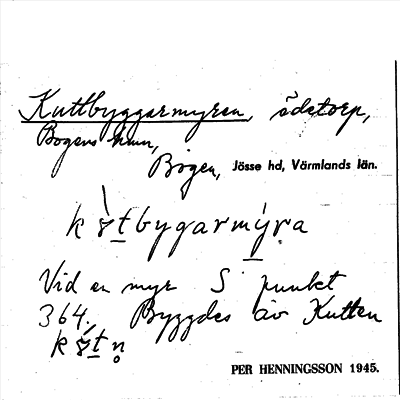 Kuttbyggarmyren, ödetorp,
Bogens kmn,
Bogen, Jösse hd, Värmlands län.
bygarmýra
Vid en myr S punkt
364. Byggdes av Kutten
PER HENNINGSSON 1945.